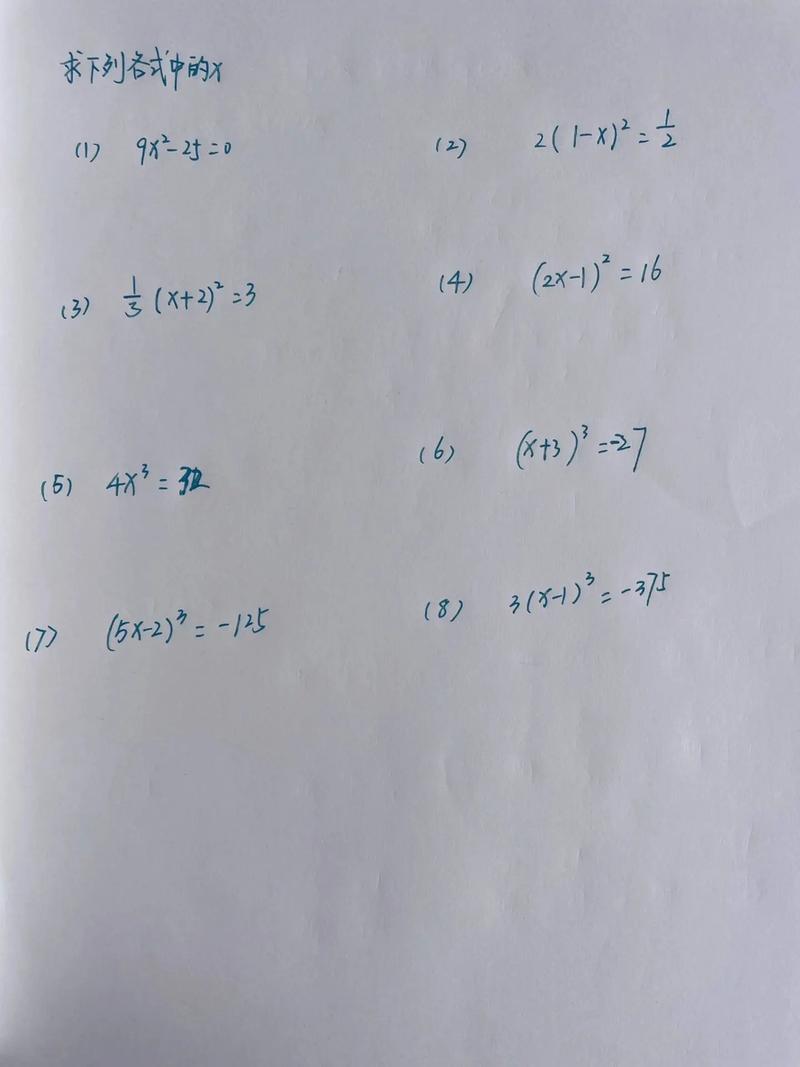 求下列各式中的x
(1) 9x²-25=0 (2) 2(1-x)²=1/2
(3) 1/3(x+2)²=3 (4) (2x-1)²=16
(5) 4x³=32 (6) (x+3)³=-27
(7) (5x-2)³=-125 (8) 3(x-1)³=-375